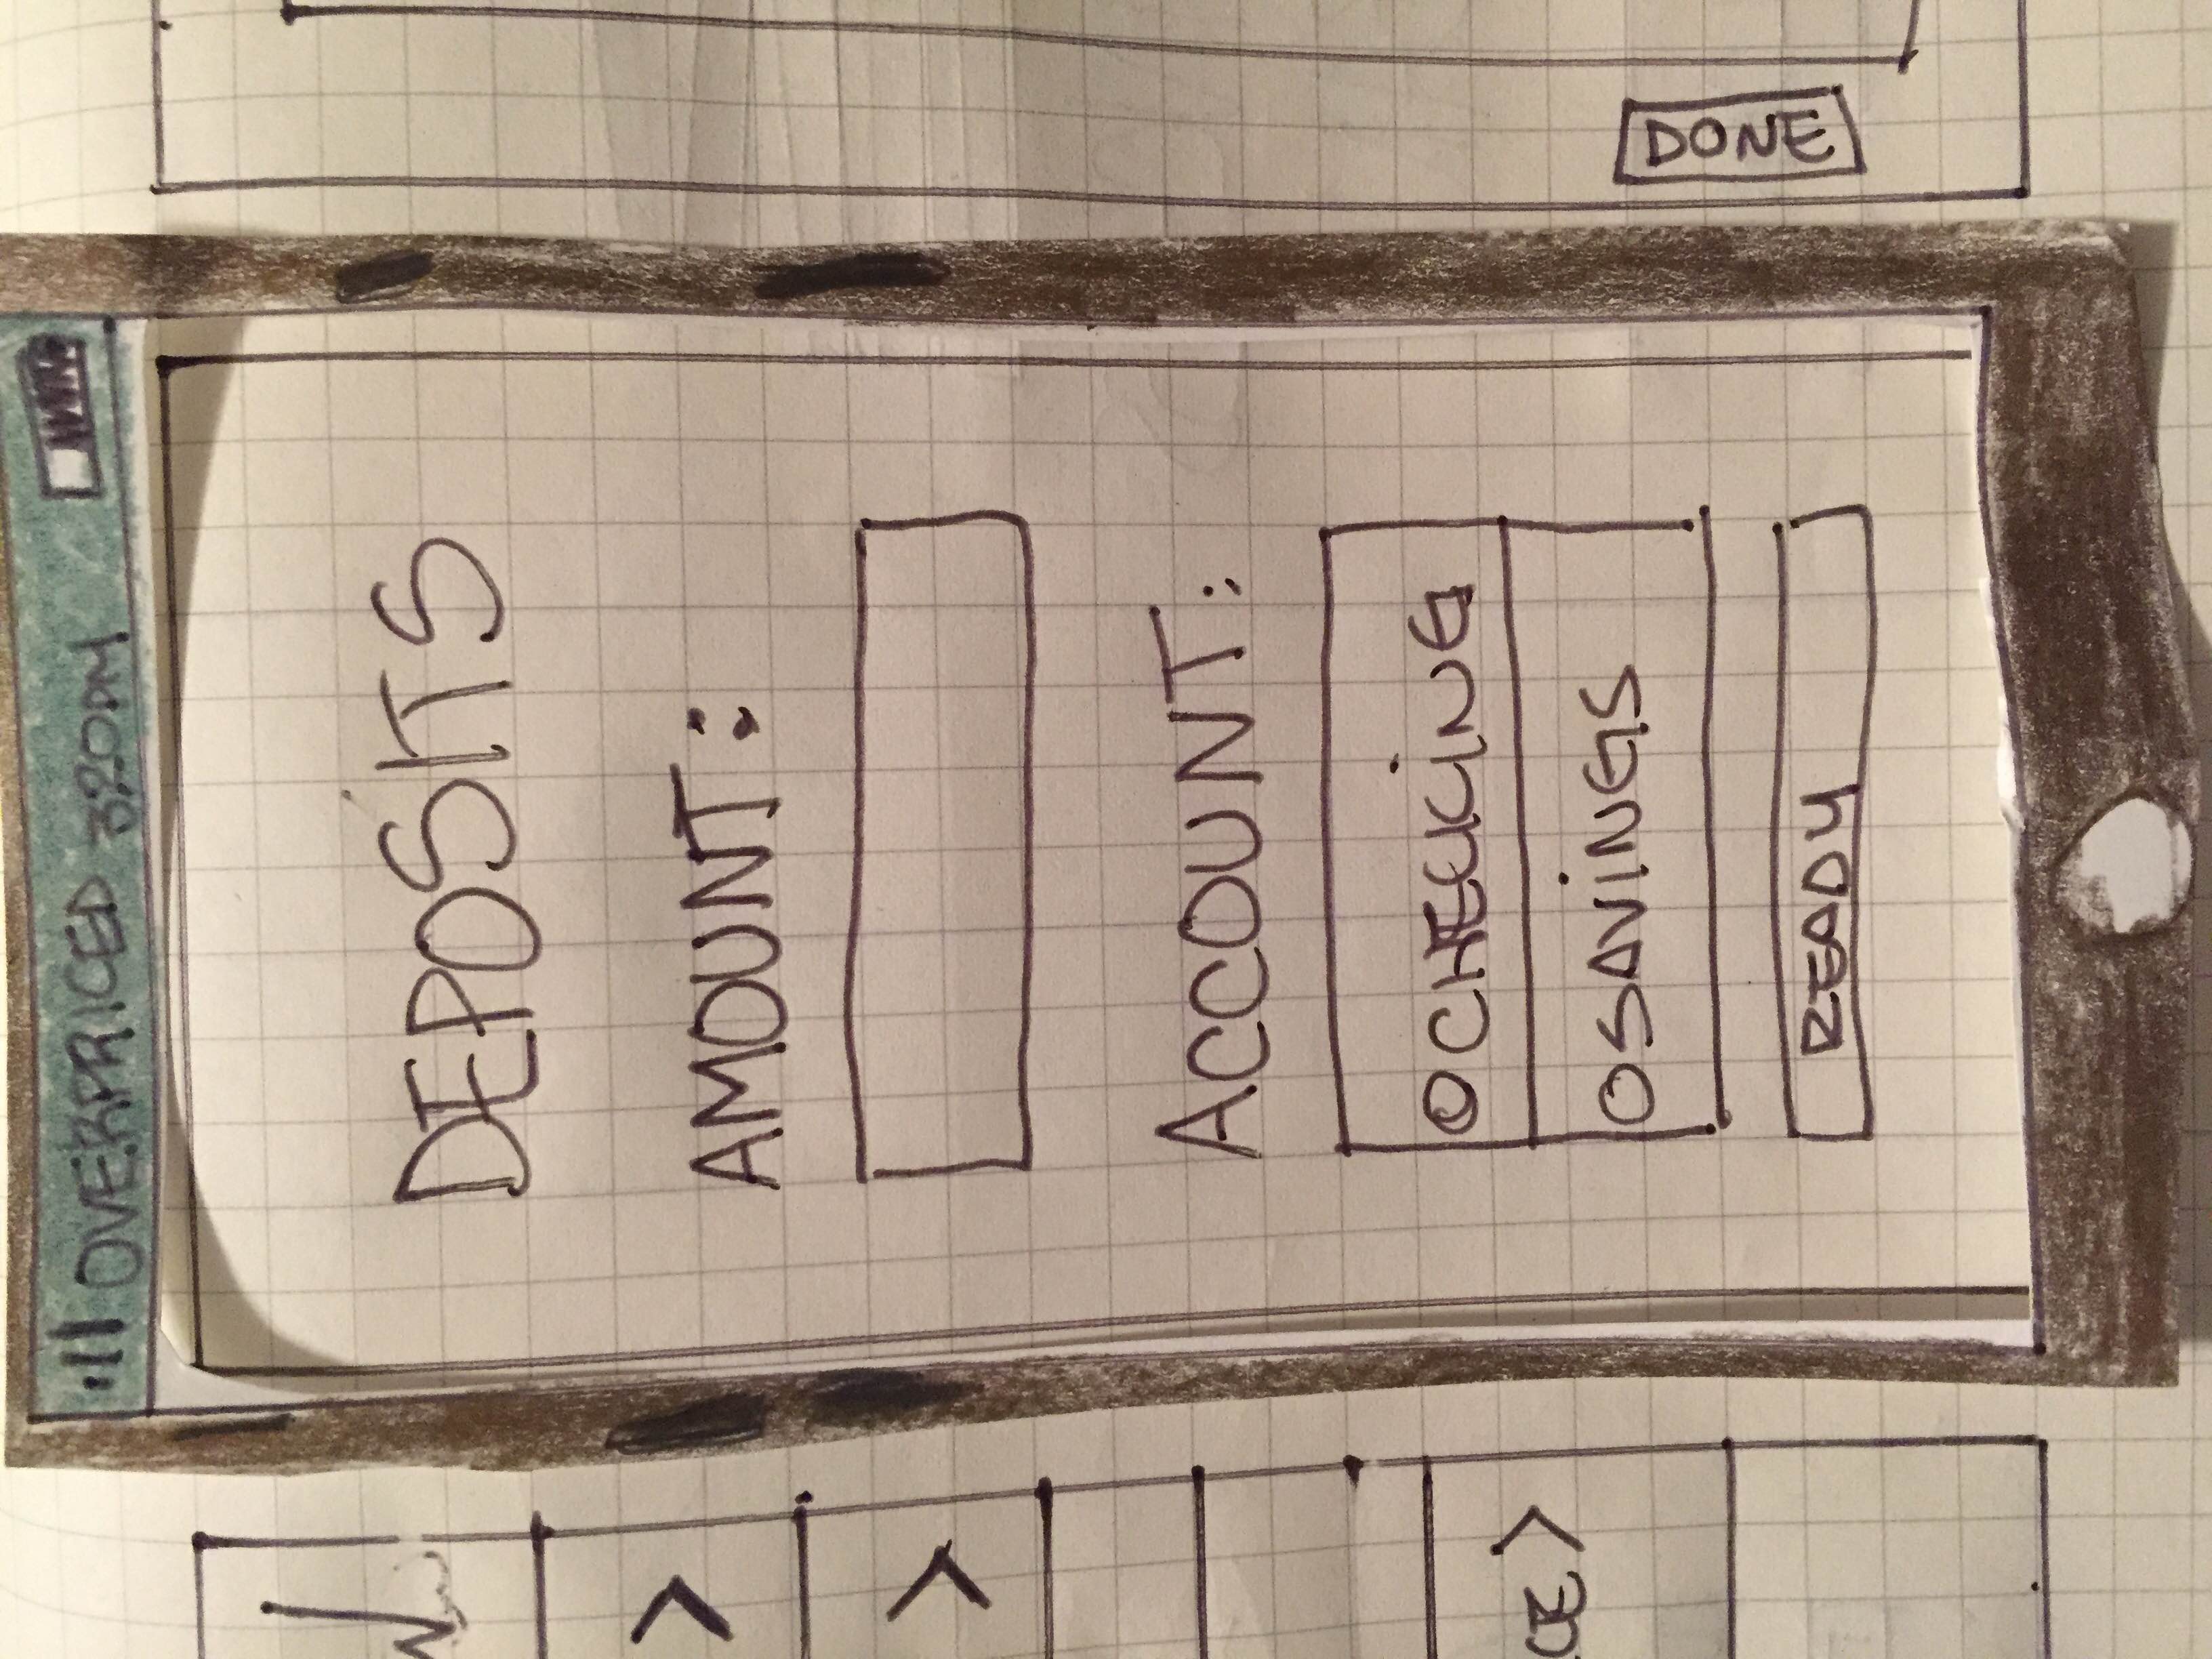 OVERPRICED 320PM
DEPOSITS
AMOUNT:
ACCOUNT:
CHECKING
SAVINGS
READY
CE >
DONE